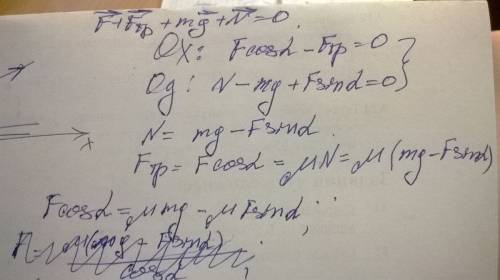 F⃗+F⃗тр+mg⃗+N⃗=0
Ox: Fcosα-Fтр=0
Oy: N-mg+Fsinα=0
x
N= mg-Fsinα.
Fтр= Fcosα= μN= μ(mg-Fsinα)
Fcosα= μmg-μFsinα;